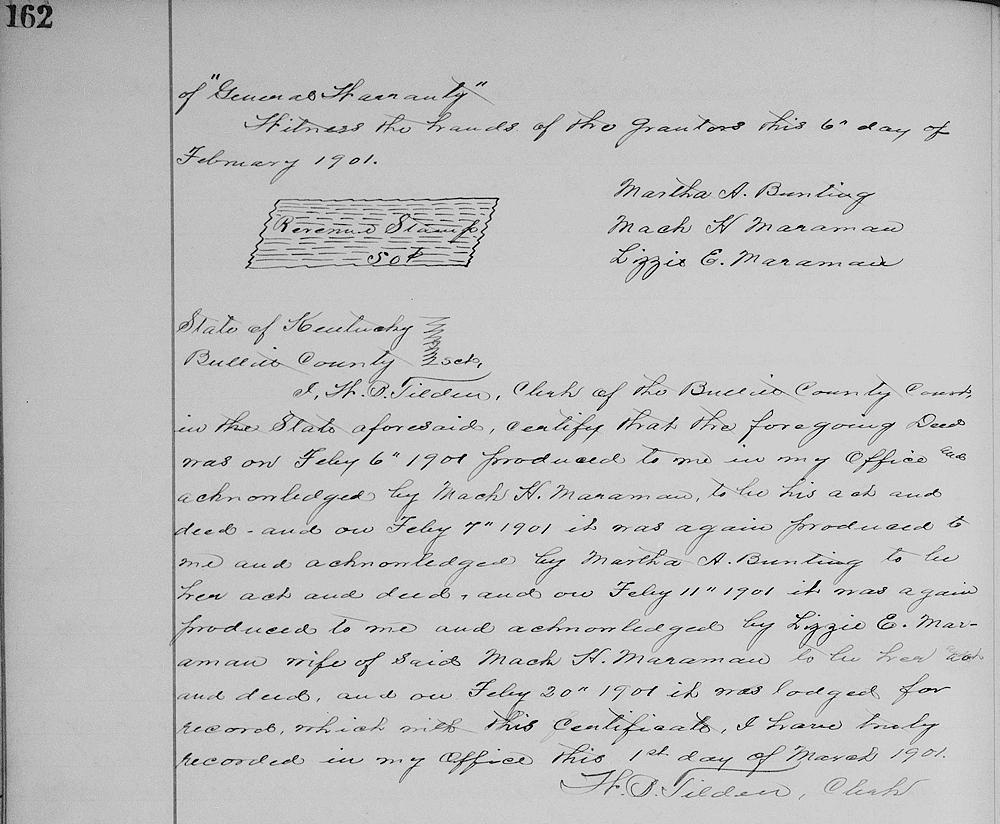 162
of "General Warranty"
Witness the hands of the Grantors this 6" day of
February 1901.
Martha A. Bunting
Mack H Maraman
Lizzie E. Maraman
Revenue Stamp
50¢
State of Kentucky
Bullitt County sct,
I, W. P. Tilden, Clerk of the Bullitt County Court
in the State aforesaid, certify that the foregoing Deed
was on Feby 6" 1901 produced to me in my Office and
acknowledged by Mack H. Maraman, to be his act and
deed - and on Feby 7" 1901 it was again produced to
me and acknowledged by Martha A. Bunting to be
her act and deed, and on Feby 11" 1901 it was again
produced to me and acknowledged by Lizzie E. Mar-
aman wife of said Mack H. Maraman to be her act
and deed, and on Feby 20" 1901 it was lodged for
record, which with this certificate, I have truly
recorded in my Office this 1st day of March 1901.
W. P. Tilden, Clerk